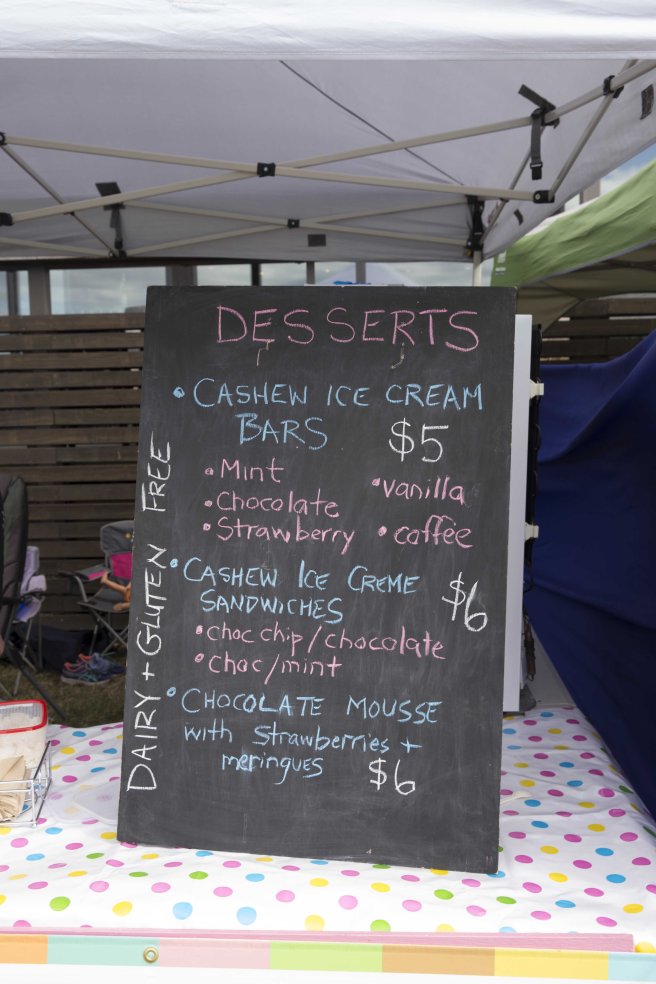 DESSERTS
• CASHEW ICE CREAM
BARS $5
• Mint
• Chocolate
• Strawberry
• vanilla
• coffee
• CASHEW ICE CREME
SANDWICHES $6
• choc chip/chocolate
• choc/mint
• CHOCOLATE MOUSSE
with strawberries +
meringues $6
DAIRY + GLUTEN FREE